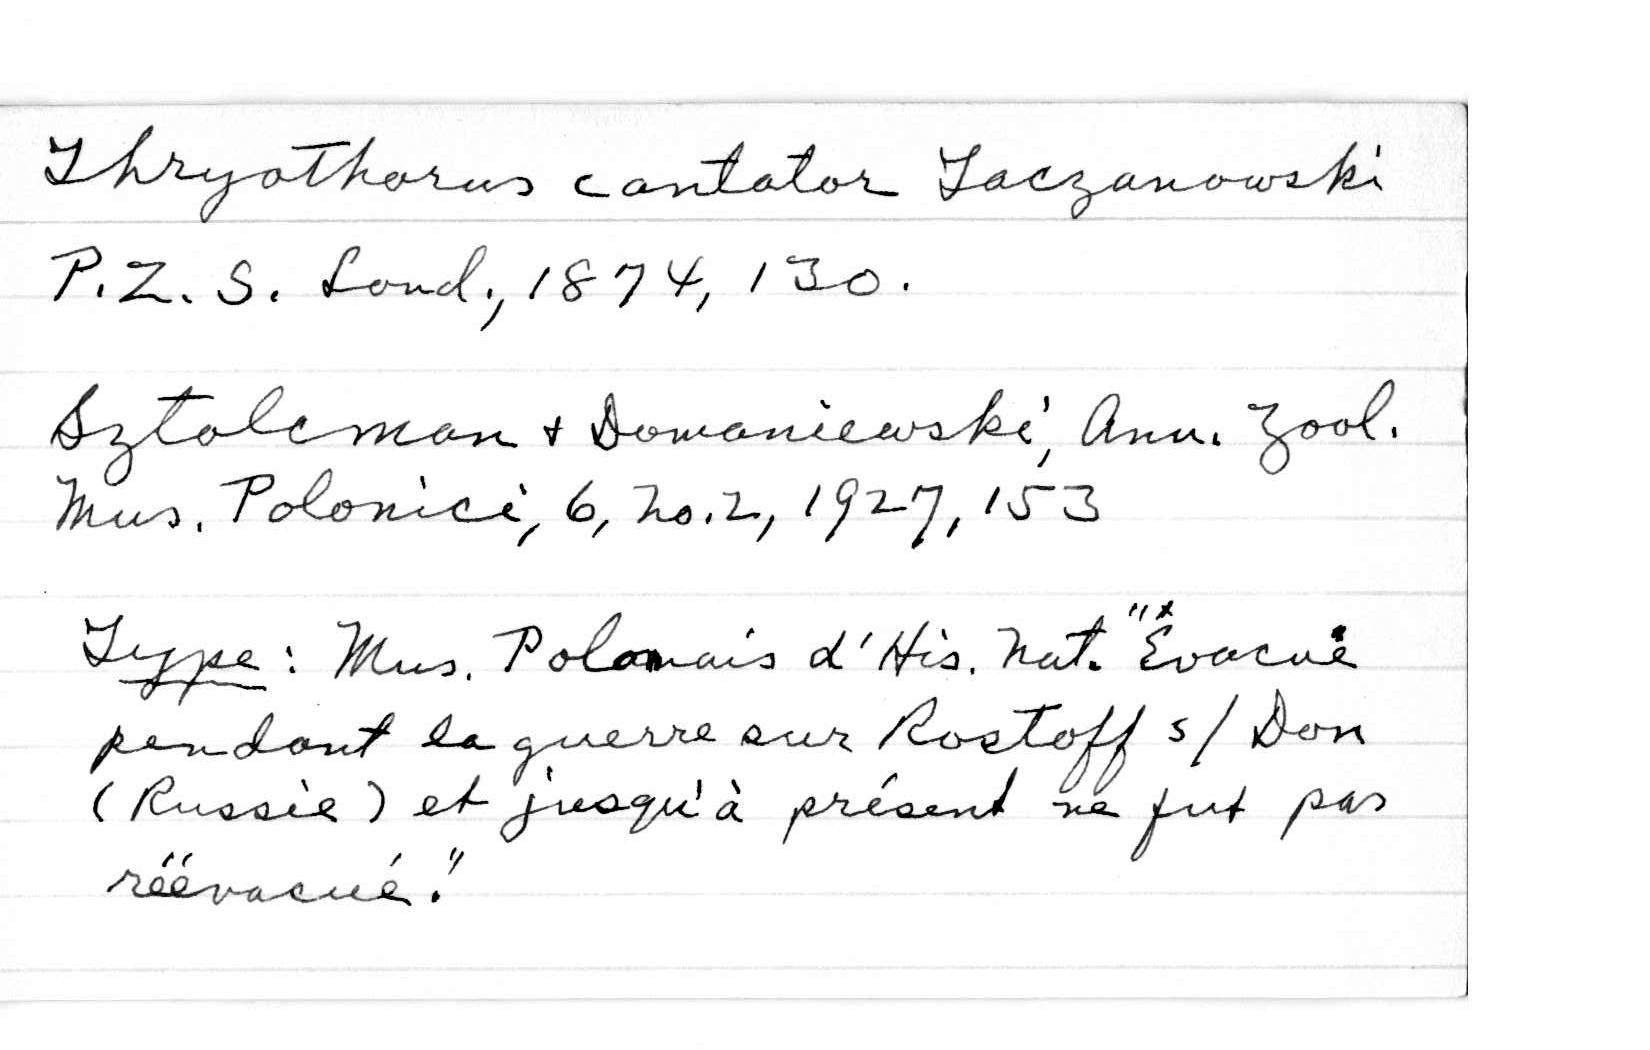 Thryothorus cantator Taczanowski
P.Z.S. Lond., 1874, 130.
Sztolcman + Domaniewski, Ann. Zool.
Mus. Polonici, 6, No. 2, 1927, 153
Type: Mus. Polonais d'His. Nat. "Évacué
pendant la guerre sur Rostoff s/Don
(Russie) et jusqu'à présent ne fut pas
réévacué."